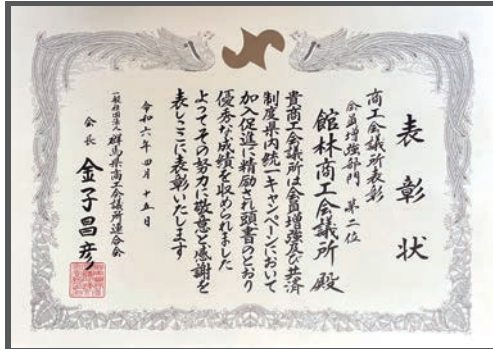 表彰状
商工会議所表彰
会員増強部門 第二位
館林商工会議所 殿
貴商工会議所は会員増強及び共済
制度県内統一キャンペーンにおいて
加入促進に精励され頭書のとおり
優秀な成績を収められました
よってその努力に敬意と感謝を
表しここに表彰いたします
令和六年四月十五日
一般社団法人 群馬県商工会議所連合会
会長 金子昌彦